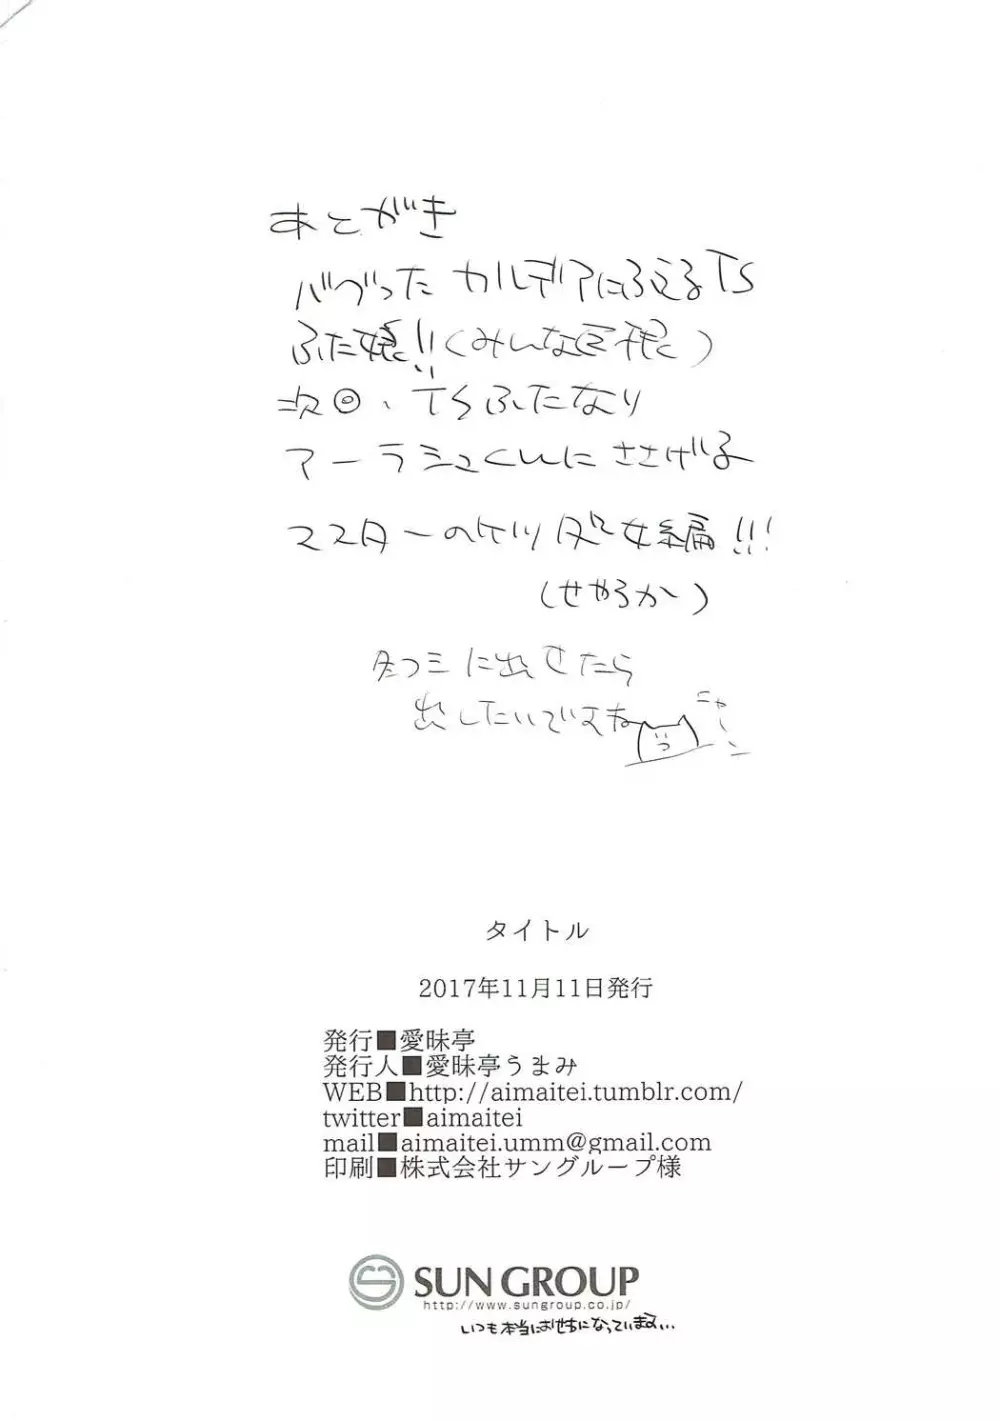 あとがき
バグったカルデアにふえるTS
ふた娘!!(みんな巨根)
次回、TSふたなり
アーラシュくんにささげる
マスターのケツ処女編!!!
(せやろか)
冬コミに出せたら
出したいですね
ニャーン
タイトル
2017年11月11日発行
発行■愛昧亭
発行人■愛昧亭うまみ
WEB■http://aimaitei.tumblr.com/
twitter■aimaitei
mail■aimaitei.umm@gmail.com
印刷■株式会社サングループ様
SUN GROUP
http://www.sungroup.co.jp/
いつも本当にお世話になっています...